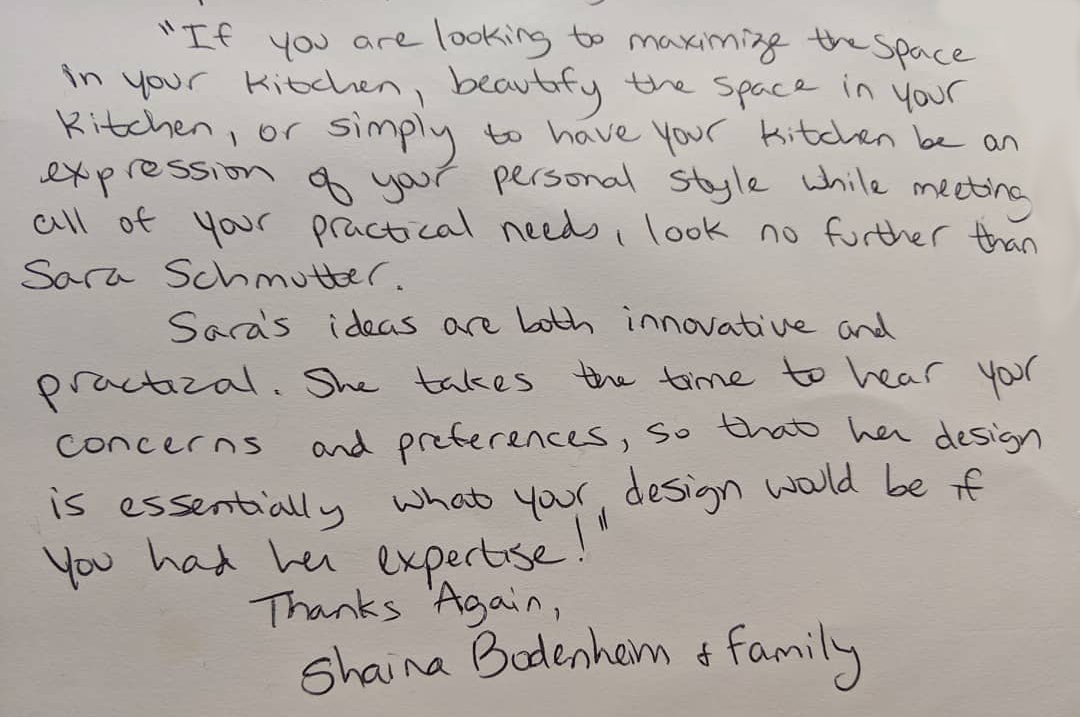 "If you are looking to maximize the space
in your kitchen, beautify the space in your
kitchen, or simply to have your kitchen be an
expression of your personal style while meeting
all of your practical needs, look no further than
Sara Schmutter.
Sara's ideas are both innovative and
practical. She takes the time to hear your
concerns and preferences, so that her design
is essentially what your design would be if
you had her expertise!"
Thanks Again,
Shaina Bodenheim & family